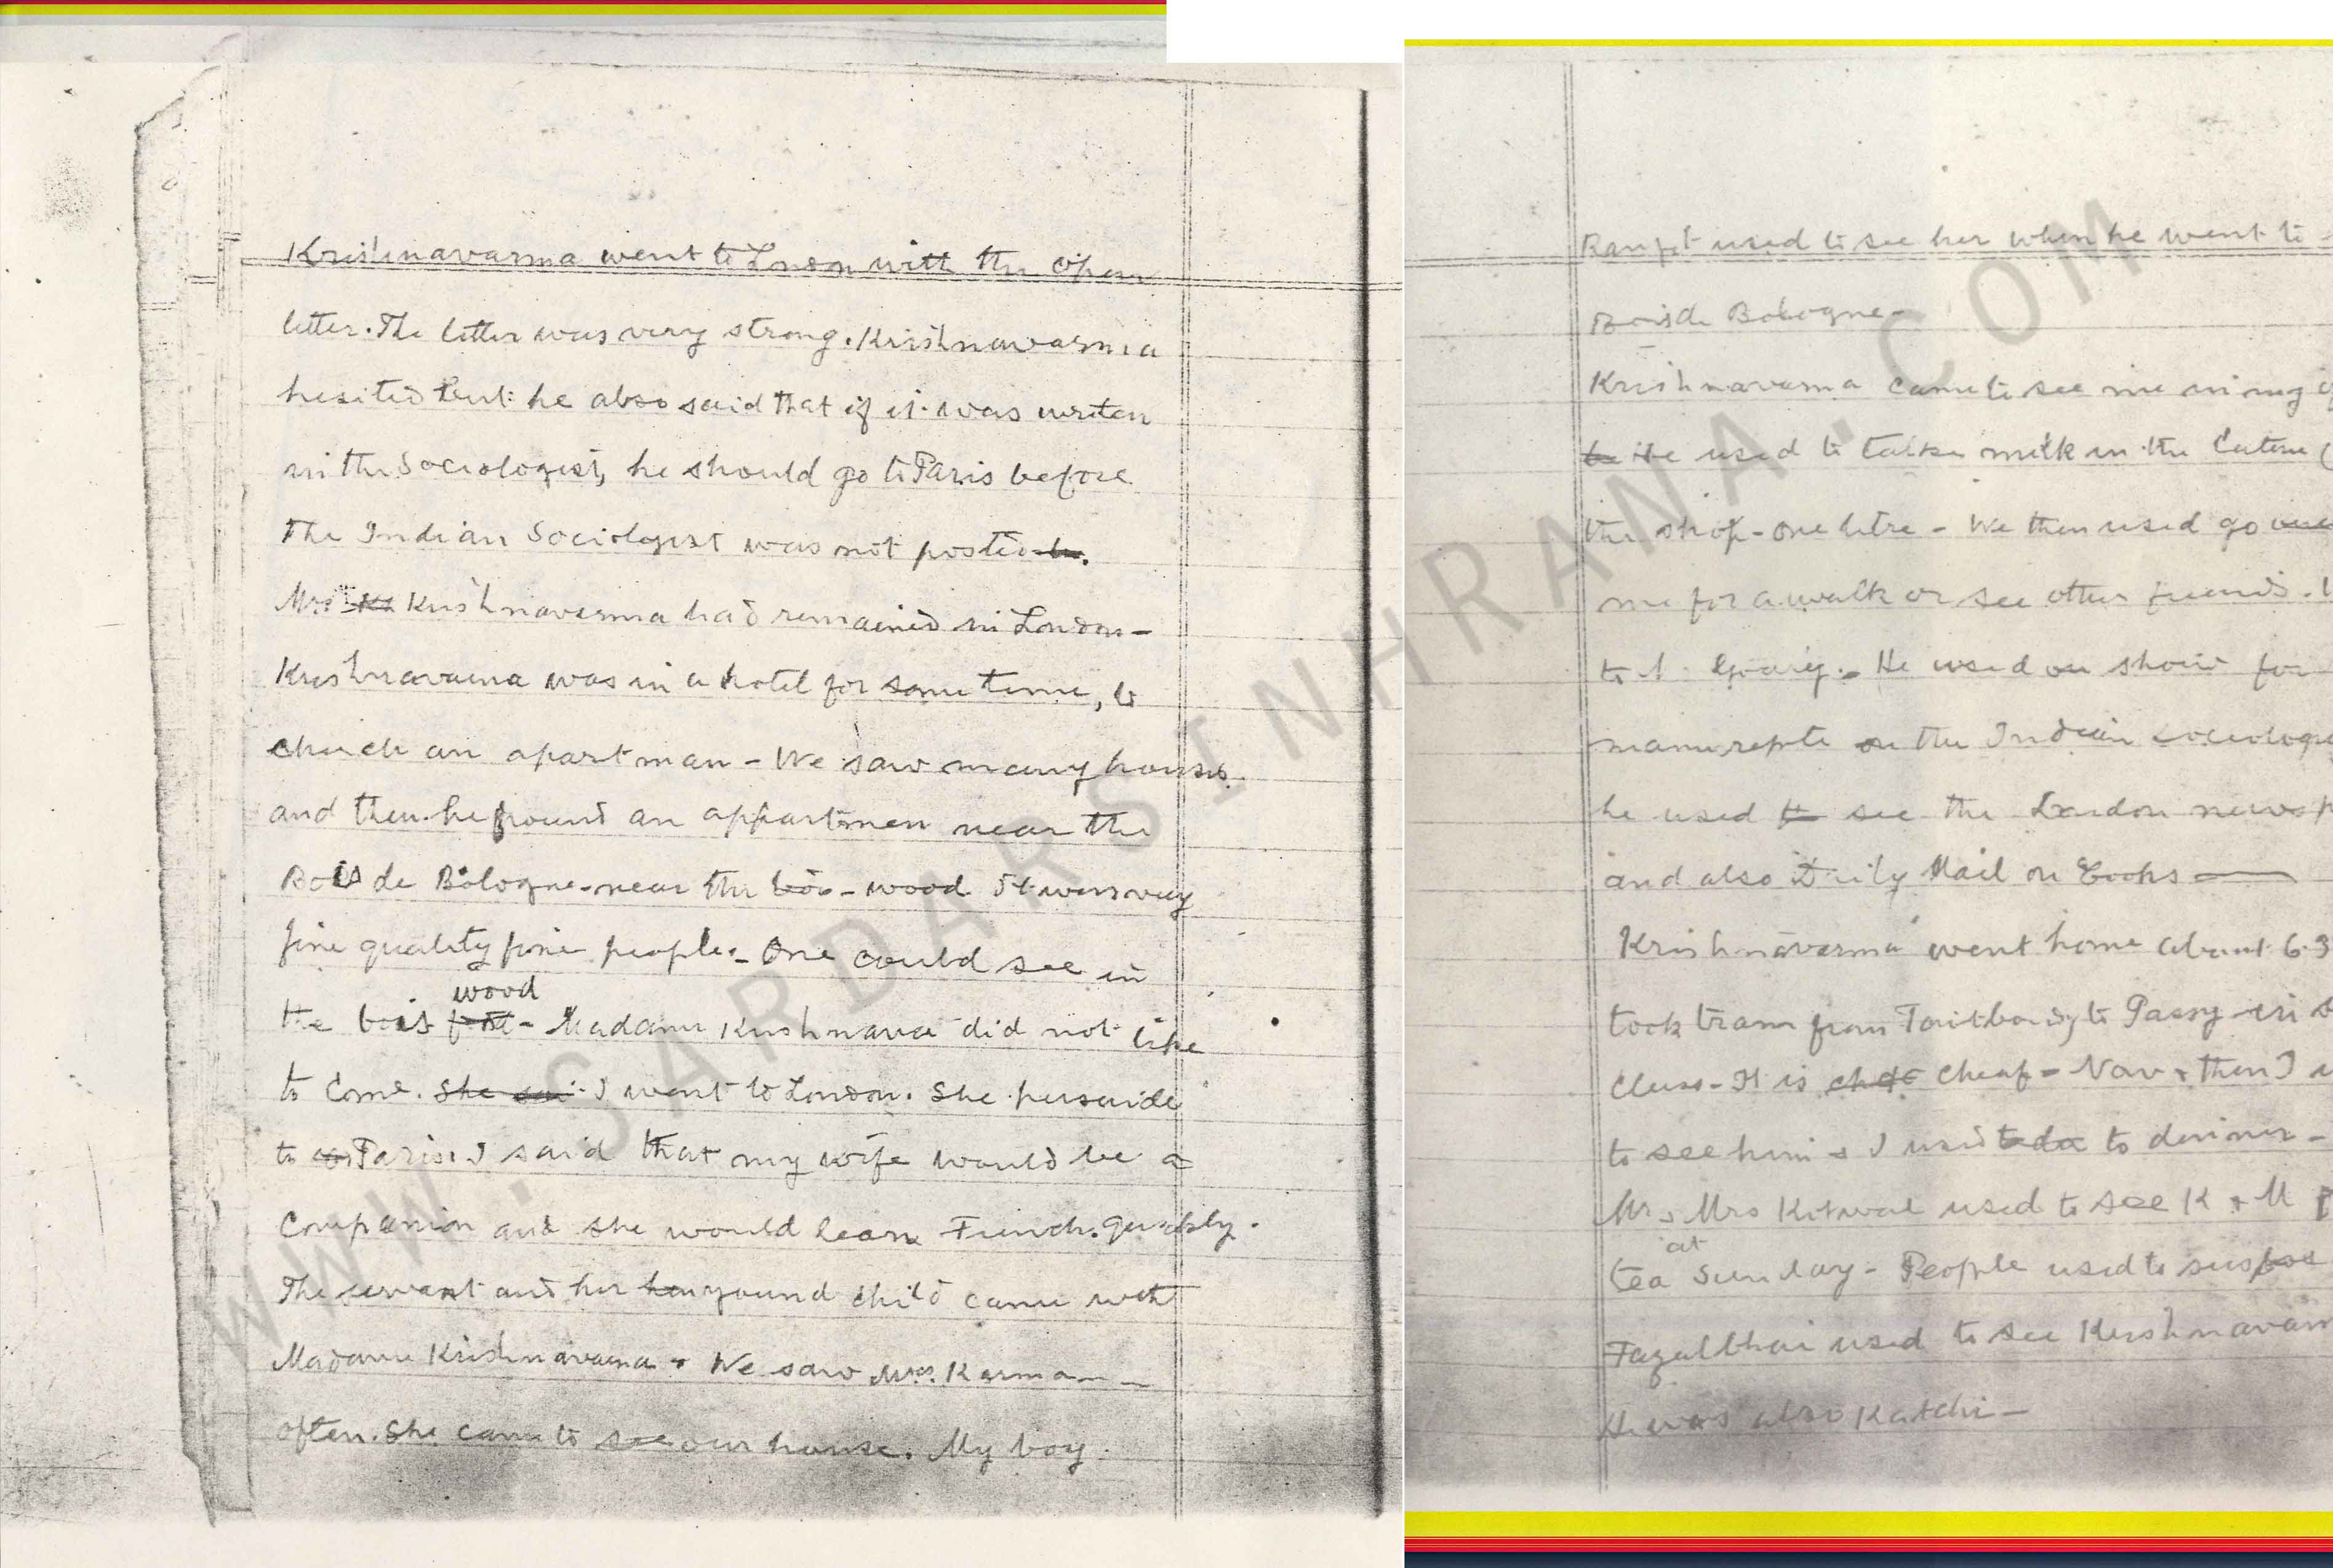 Krishnavarma went to Lnodon with the open
letter. The letter was very strong. Krishnavarma
hesited but he also said that if it was writen
in the Sociologist, he should go to Paris before
the Indian Sociologist was not posted
Mrs Krishnavarma had remained in London -
Krishnavarma was in a hotel for some time, to
an apartman - We saw many houses.
and then he found an appartmen near the
Bois de Bologne - near the bois - wood It was very
fine quality fine people. - One could see in
the bois wood - Madame Krishnava did not like
to come. She sai I went to London. She persuide
to Paris. I said that my wife would be a
Companion and she would learn French. quickly.
The servant and her yound child came with
Madame Krishnavarma. We saw Mrs. Karma
often. She came to see our house. My boy
Ranjit used to see her when he went to
Bois de Bologne -
Krishnavarma came to see me in my
He used to take milk in the
the shop - one litre - We then used go
me for a walk or see other friends.
to He used on show for
on the Indian
he used to see the London
and also Mail on Books
Krishnavarma went home about 6.3
took tram from to Passy in
class - It is cheap - Now & then I
to see him & I used to dinner -
Mr & Mrs used to see K & M
tea at Sunday - People used to
Fazalbhai used to see
He was also Katchi -
WWW.SARDARSINHRANA.COM